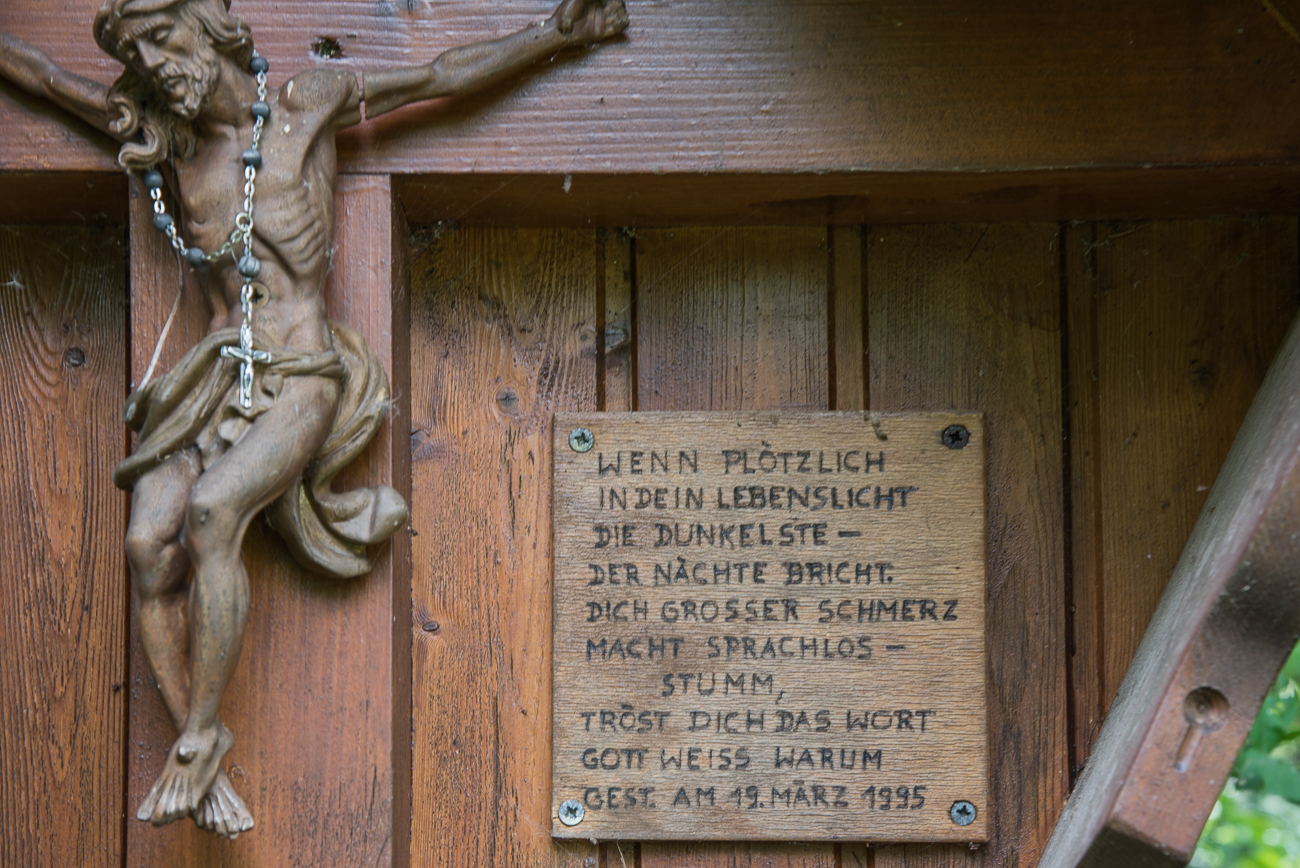 WENN PLÖTZLICH
IN DEIN LEBENSLICHT
DIE DUNKELSTE –
DER NÄCHTE BRICHT.
DICH GROSSER SCHMERZ
MACHT SPRACHLOS –
STUMM,
TRÖST DICH DAS WORT
GOTT WEISS WARUM
GEST. AM 19. MÄRZ 1995